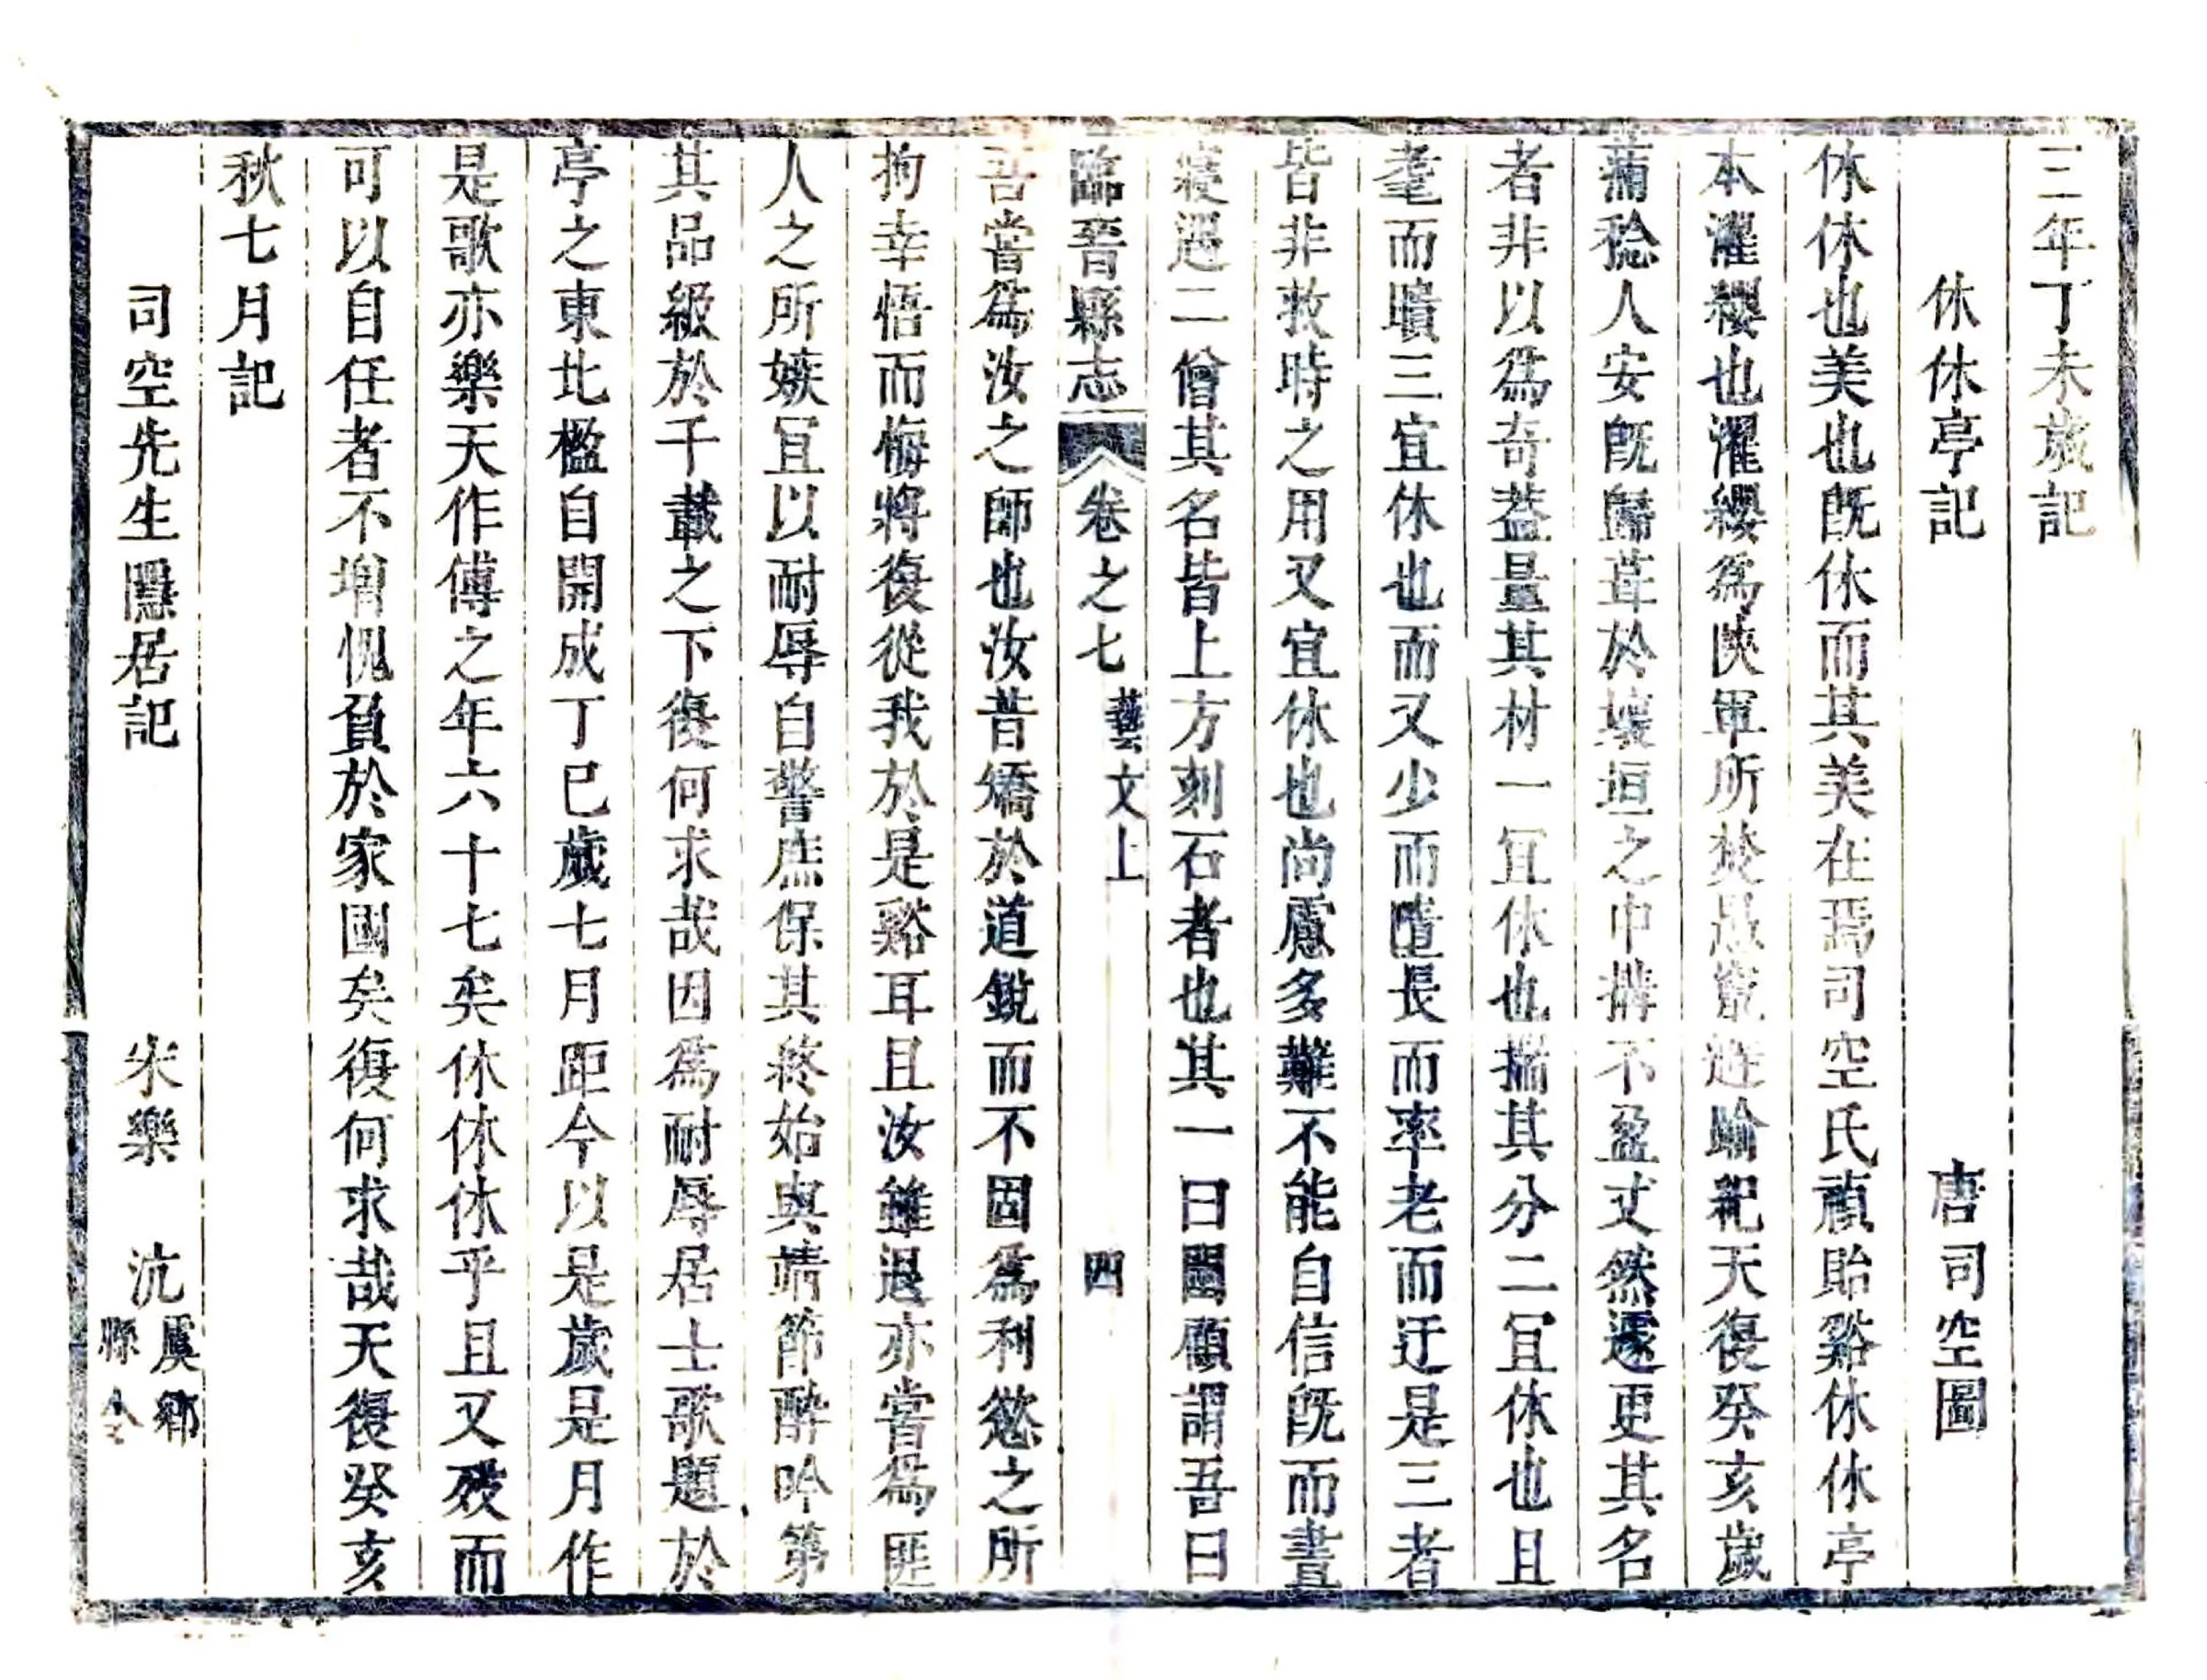 三年丁未歲記
休休亭記　唐司空圖
休休也美也旣休而其美在焉司空氏禎貽谿休休亭
本濯纓也濯纓爲陝軍所焚愚竄避踰紀天復癸亥歲
蒲稔人安旣歸葺於壞垣之中搆不盈丈然遽更其名
者非以爲奇葢量其材一宜休也揣其分二宜休也且
耄而聵三宜休也而又少而墮長而率老而迂是三者
皆非救時之用又宜休也尚慮多難不能自信旣而晝
寢遇二僧其名皆上方刻石者也其一曰顧謂吾曰
臨晉縣志　卷之七　藝文上　四
吾嘗爲汝之師也汝昔矯於道銳而不固爲利慾之所
拘幸悟而悔將復從我於是谿耳且汝雖退亦嘗爲匪
人之所嫉宜以耐辱自警庶保其終始與靖節醉吟第
其品級於千載之下復何求哉因爲耐辱居士歌題於
亭之東北楹自開成丁巳歲七月距今以是歲是月作
是歌亦樂天作傳之年六十七矣休休休乎且又歿而
可以自任者不增愧負於家國矣復何求哉天復癸亥
秋七月記
司空先生隱居記　宋樂　沆虞鄉縣令